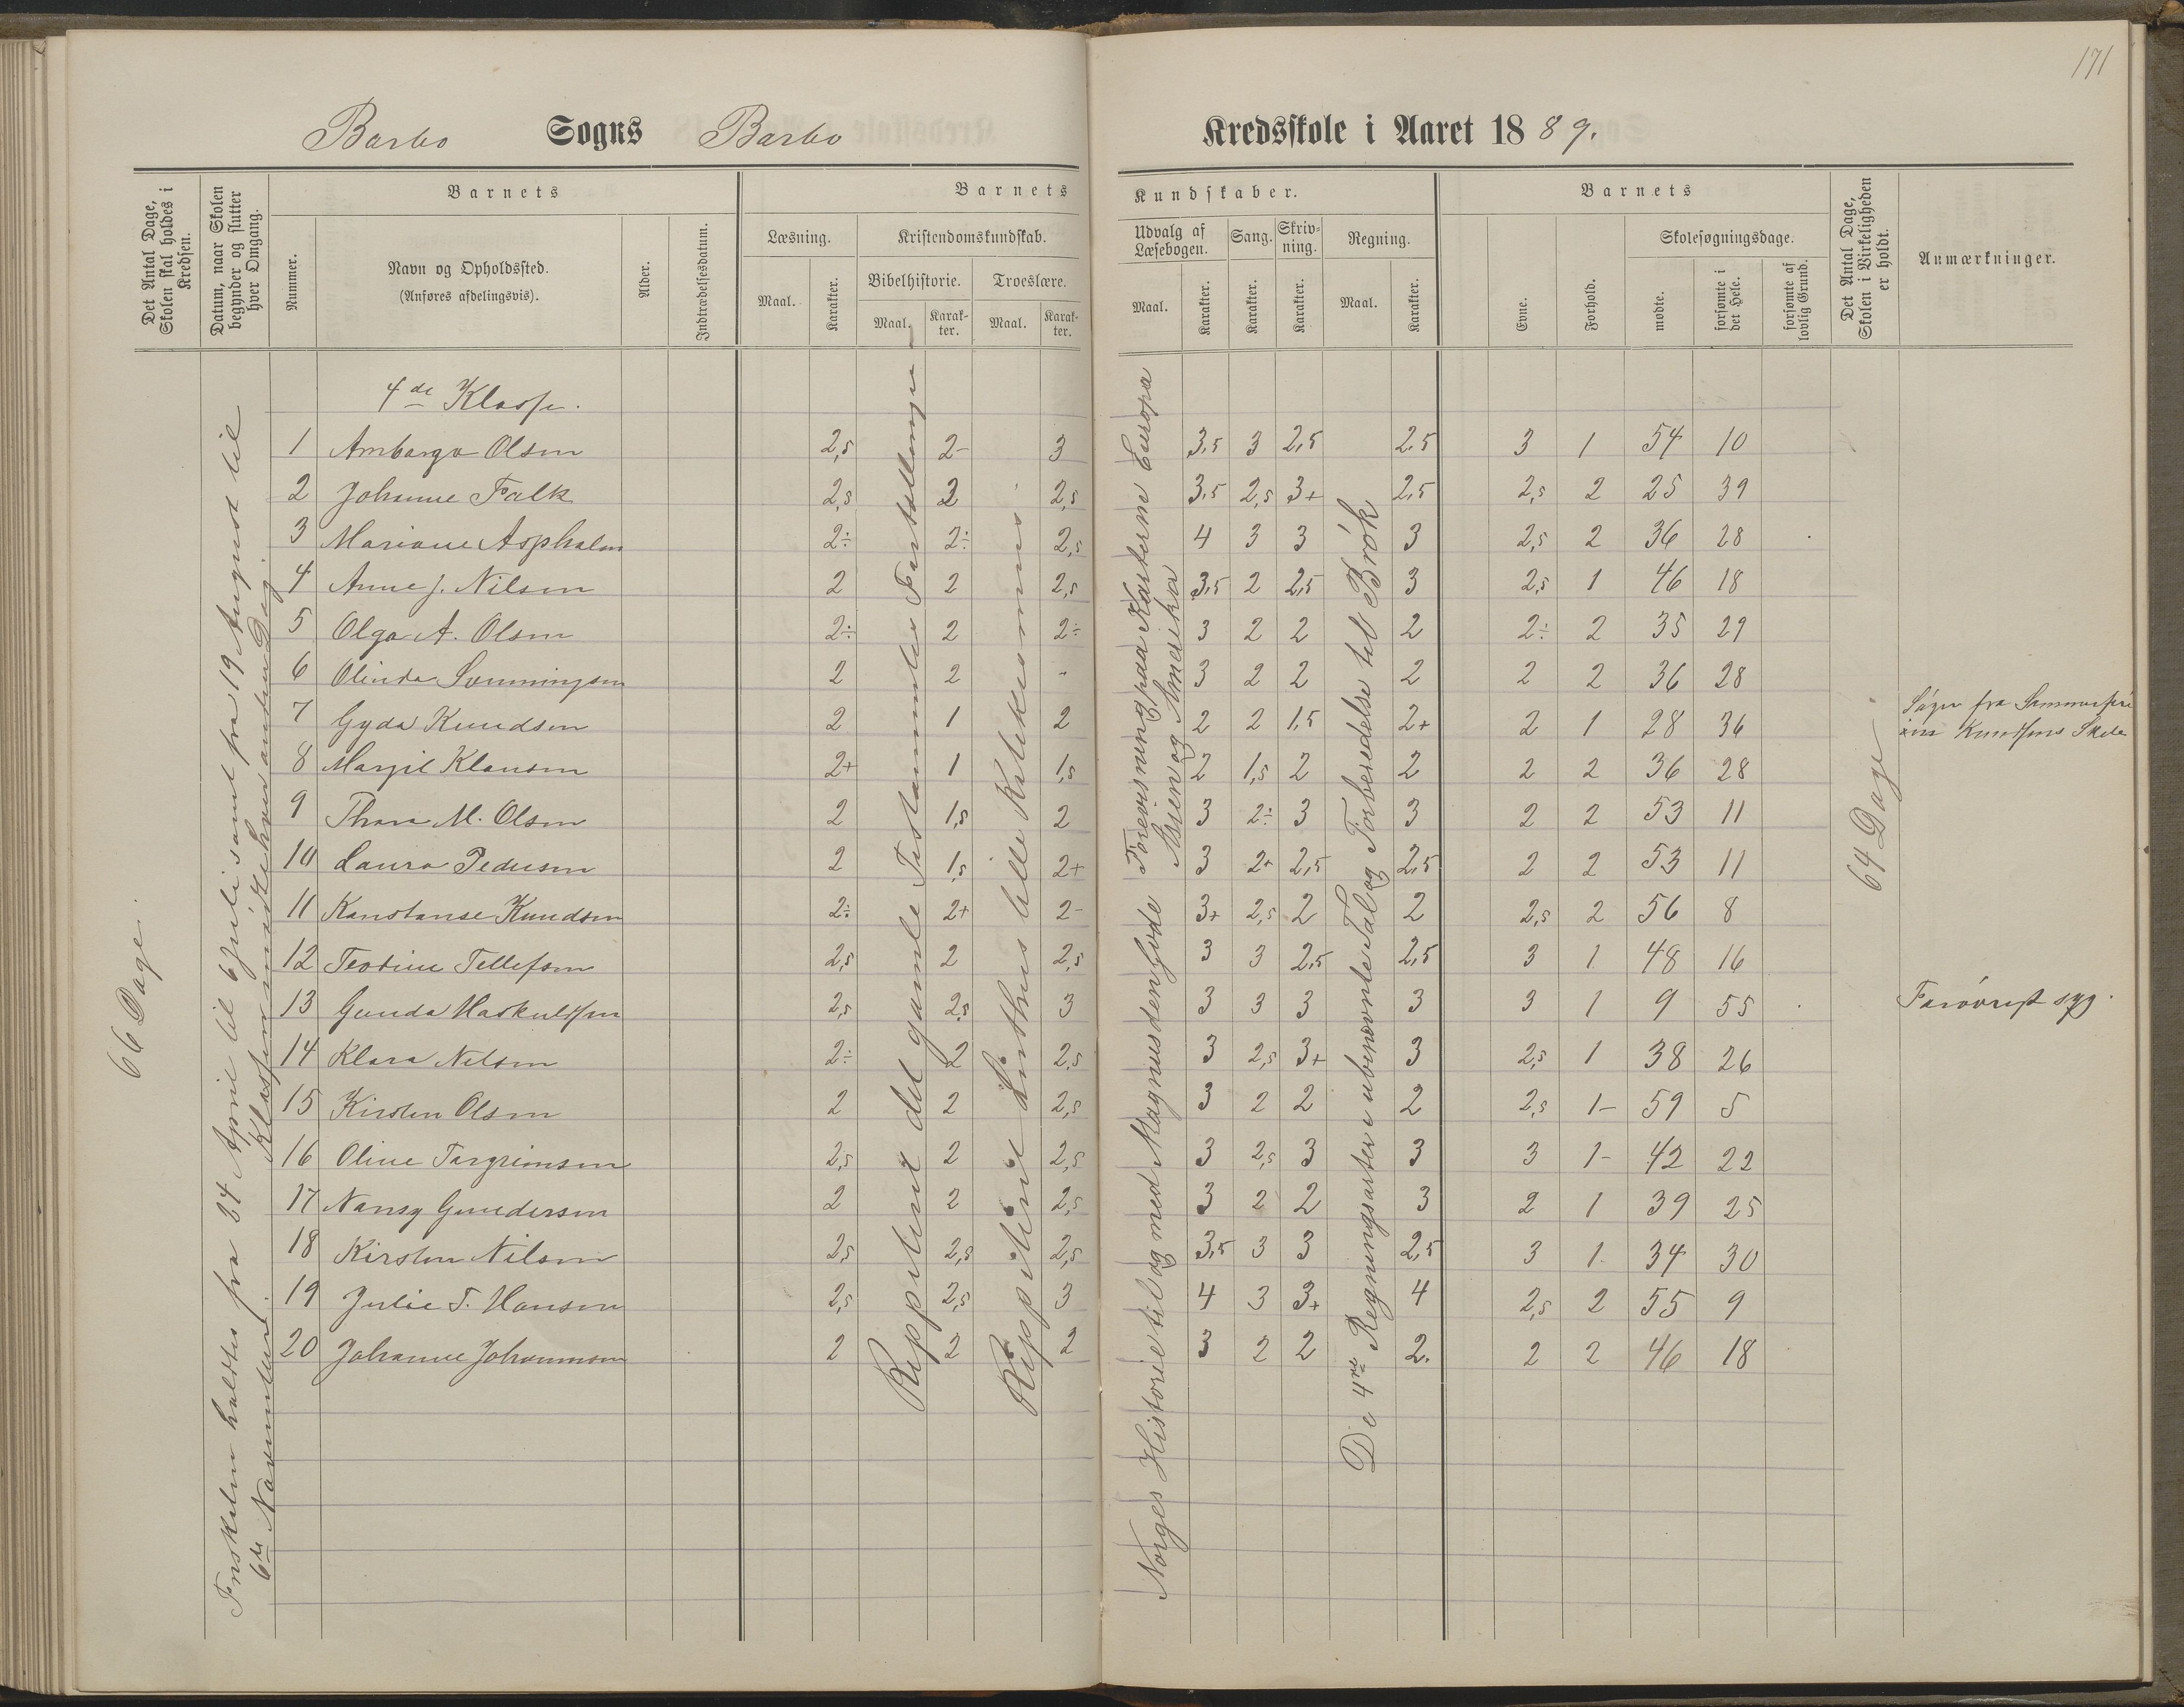 171
Barbo Sogns Barbo Kredsskole i Aaret 1889.
Det Antal Dage, Skolen skal holdes i Kredsen.
Datum, naar Skolen begynder og slutter hver Omgang.
Barnets
Nummer.
Navn og Opholdssted.
(Anføres afdelingsvis).
Alder.
Indtrædelsesdatum.
Barnets Kundskaber.
Læsning.
Maal.
Karakter.
Kristendomskundskab.
Bibelhistorie.
Maal.
Karak-
ter.
Troeslære.
Maal.
Karak-
ter.
Udvalg af
Læsebogen.
Maal.
Karakter.
Sang.
Karakter.
Skriv-
ning.
Karakter.
Regning.
Maal.
Karakter.
Barnets
Evne.
Forhold.
Skolesøgningsdage.
mødte.
forsømte i det Hele.
forsømte af lovlig Grund.
Det Antal Dage, Skolen i Virkeligheden er holdt.
Anmærkninger.
66 Dage.
fra 24 April til 6 Juli samt fra 19 August til
6te November. Klassen hver anden Dag.
Reppetend det gamle Testamentes Fortællinger
Reppetend Luthers lille Katekismus
Norges Historie til og med Magnus den gode Forevisning paa Karterne Europa
Asien og Amerika
De 4re Regningsarter i ubenævnte Tal og Forberedelse til Brøk
64 Dage
4de Klasse.
1 Amborga Olsen 2,5 2- 3 3,5 3 2,5 2,5 3 1 54 10
2 Johanne Falk 2,5 3 2,5 3,5 2,5 3+ 2,5 2,5 2 25 39
3 Mariane Aspholm 2÷ 2÷ 2,5 4 3 3 3 2,5 2 36 28
4 Anne J. Nilsen 2 2 2,5 3,5 2 2,5 3 2,5 1 46 18
5 Olga A. Olsen 2÷ 2 2÷ 3 2 2 2 2÷ 2 35 29
6 Olinda 2 2 - 3 2 2 2 2 2 36 28
7 Gyda Knudsen 2 1 2 2 2 1,5 2+ 2 1 28 36 Søger fra Sommerferi
Skole
8 Margit Klausen 2+ 1 1,5 2 1,5 2 2 2 2 36 28
9 Thora M. Olsen 2 1,5 2 3 2÷ 3 3 2 2 53 11
10 Laura Pedersen 2 1,5 2+ 3 2+ 2,5 2,5 2 2 53 11
11 Konstanse Knudsen 2÷ 2+ 2- 3+ 2,5 2 2 2,5 2 56 8
12 Teodine Tellefsen 2,5 2 2,5 3 3 2,5 2,5 3 1 48 16
13 Gunda Haskuldsen 2,5 2,5 3 3 3 3 3 3 1 9 55 Forøvrigt syg.
14 Klara Nilsen 2÷ 2 2,5 3 2,5 3+ 3 2,5 1 38 26
15 Kirsten Olsen 2 2 2,5 3 2 2 2 2,5 1- 59 5
16 Oline Torgrimsen 2,5 2 2,5 3 2,5 3 3 3 1- 42 22
17 Nansy Gundersen 2 2 2,5 3 2 2 3 2 1 39 25
18 Kirsten Nilsen 2,5 2,5 2,5 3,5 3 3 2,5 3 1 34 30
19 Julie T. Hansen 2,5 2,5 3 4 3 3+ 4 2,5 2 55 9
20 Johanne Johannesen 2 2 2 3 2 2 2. 2 2 46 18